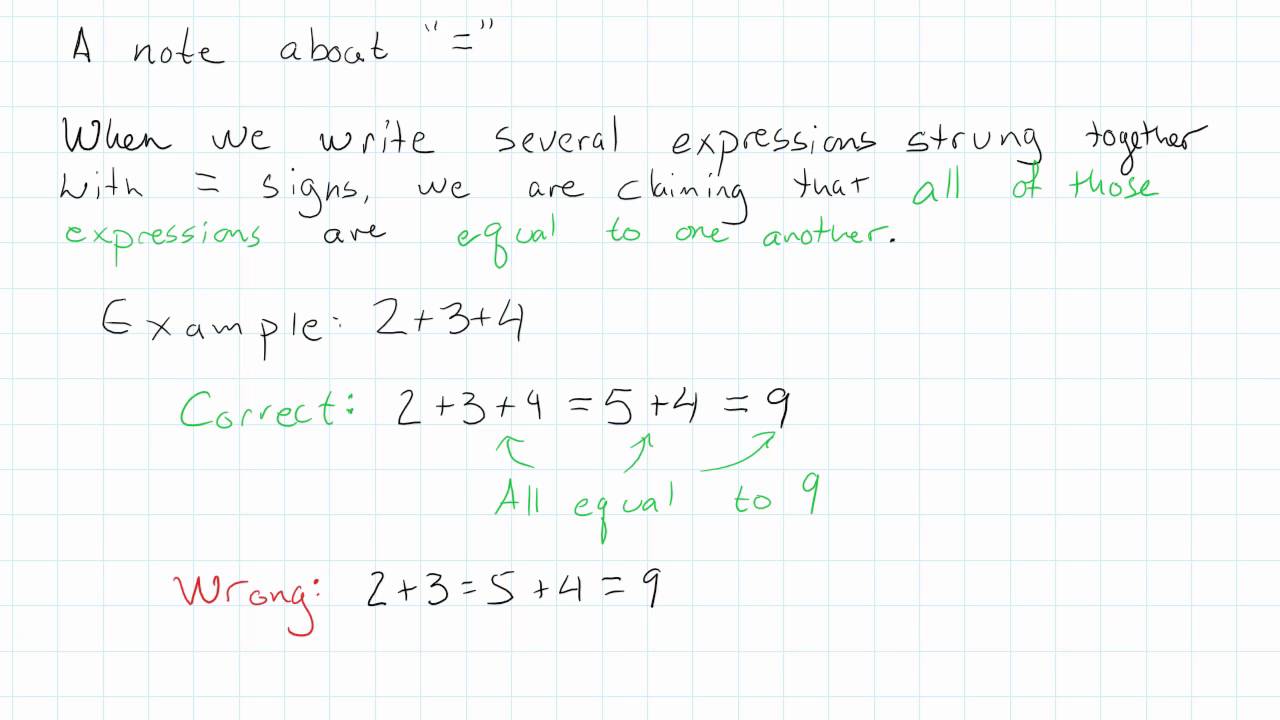 A note about "="
When we write several expressions strung together
with = signs, we are claiming that all of those
expressions are equal to one another.
Example: 2+3+4
Correct: 2+3+4 = 5+4 = 9
All equal to 9
Wrong: 2+3=5+4=9